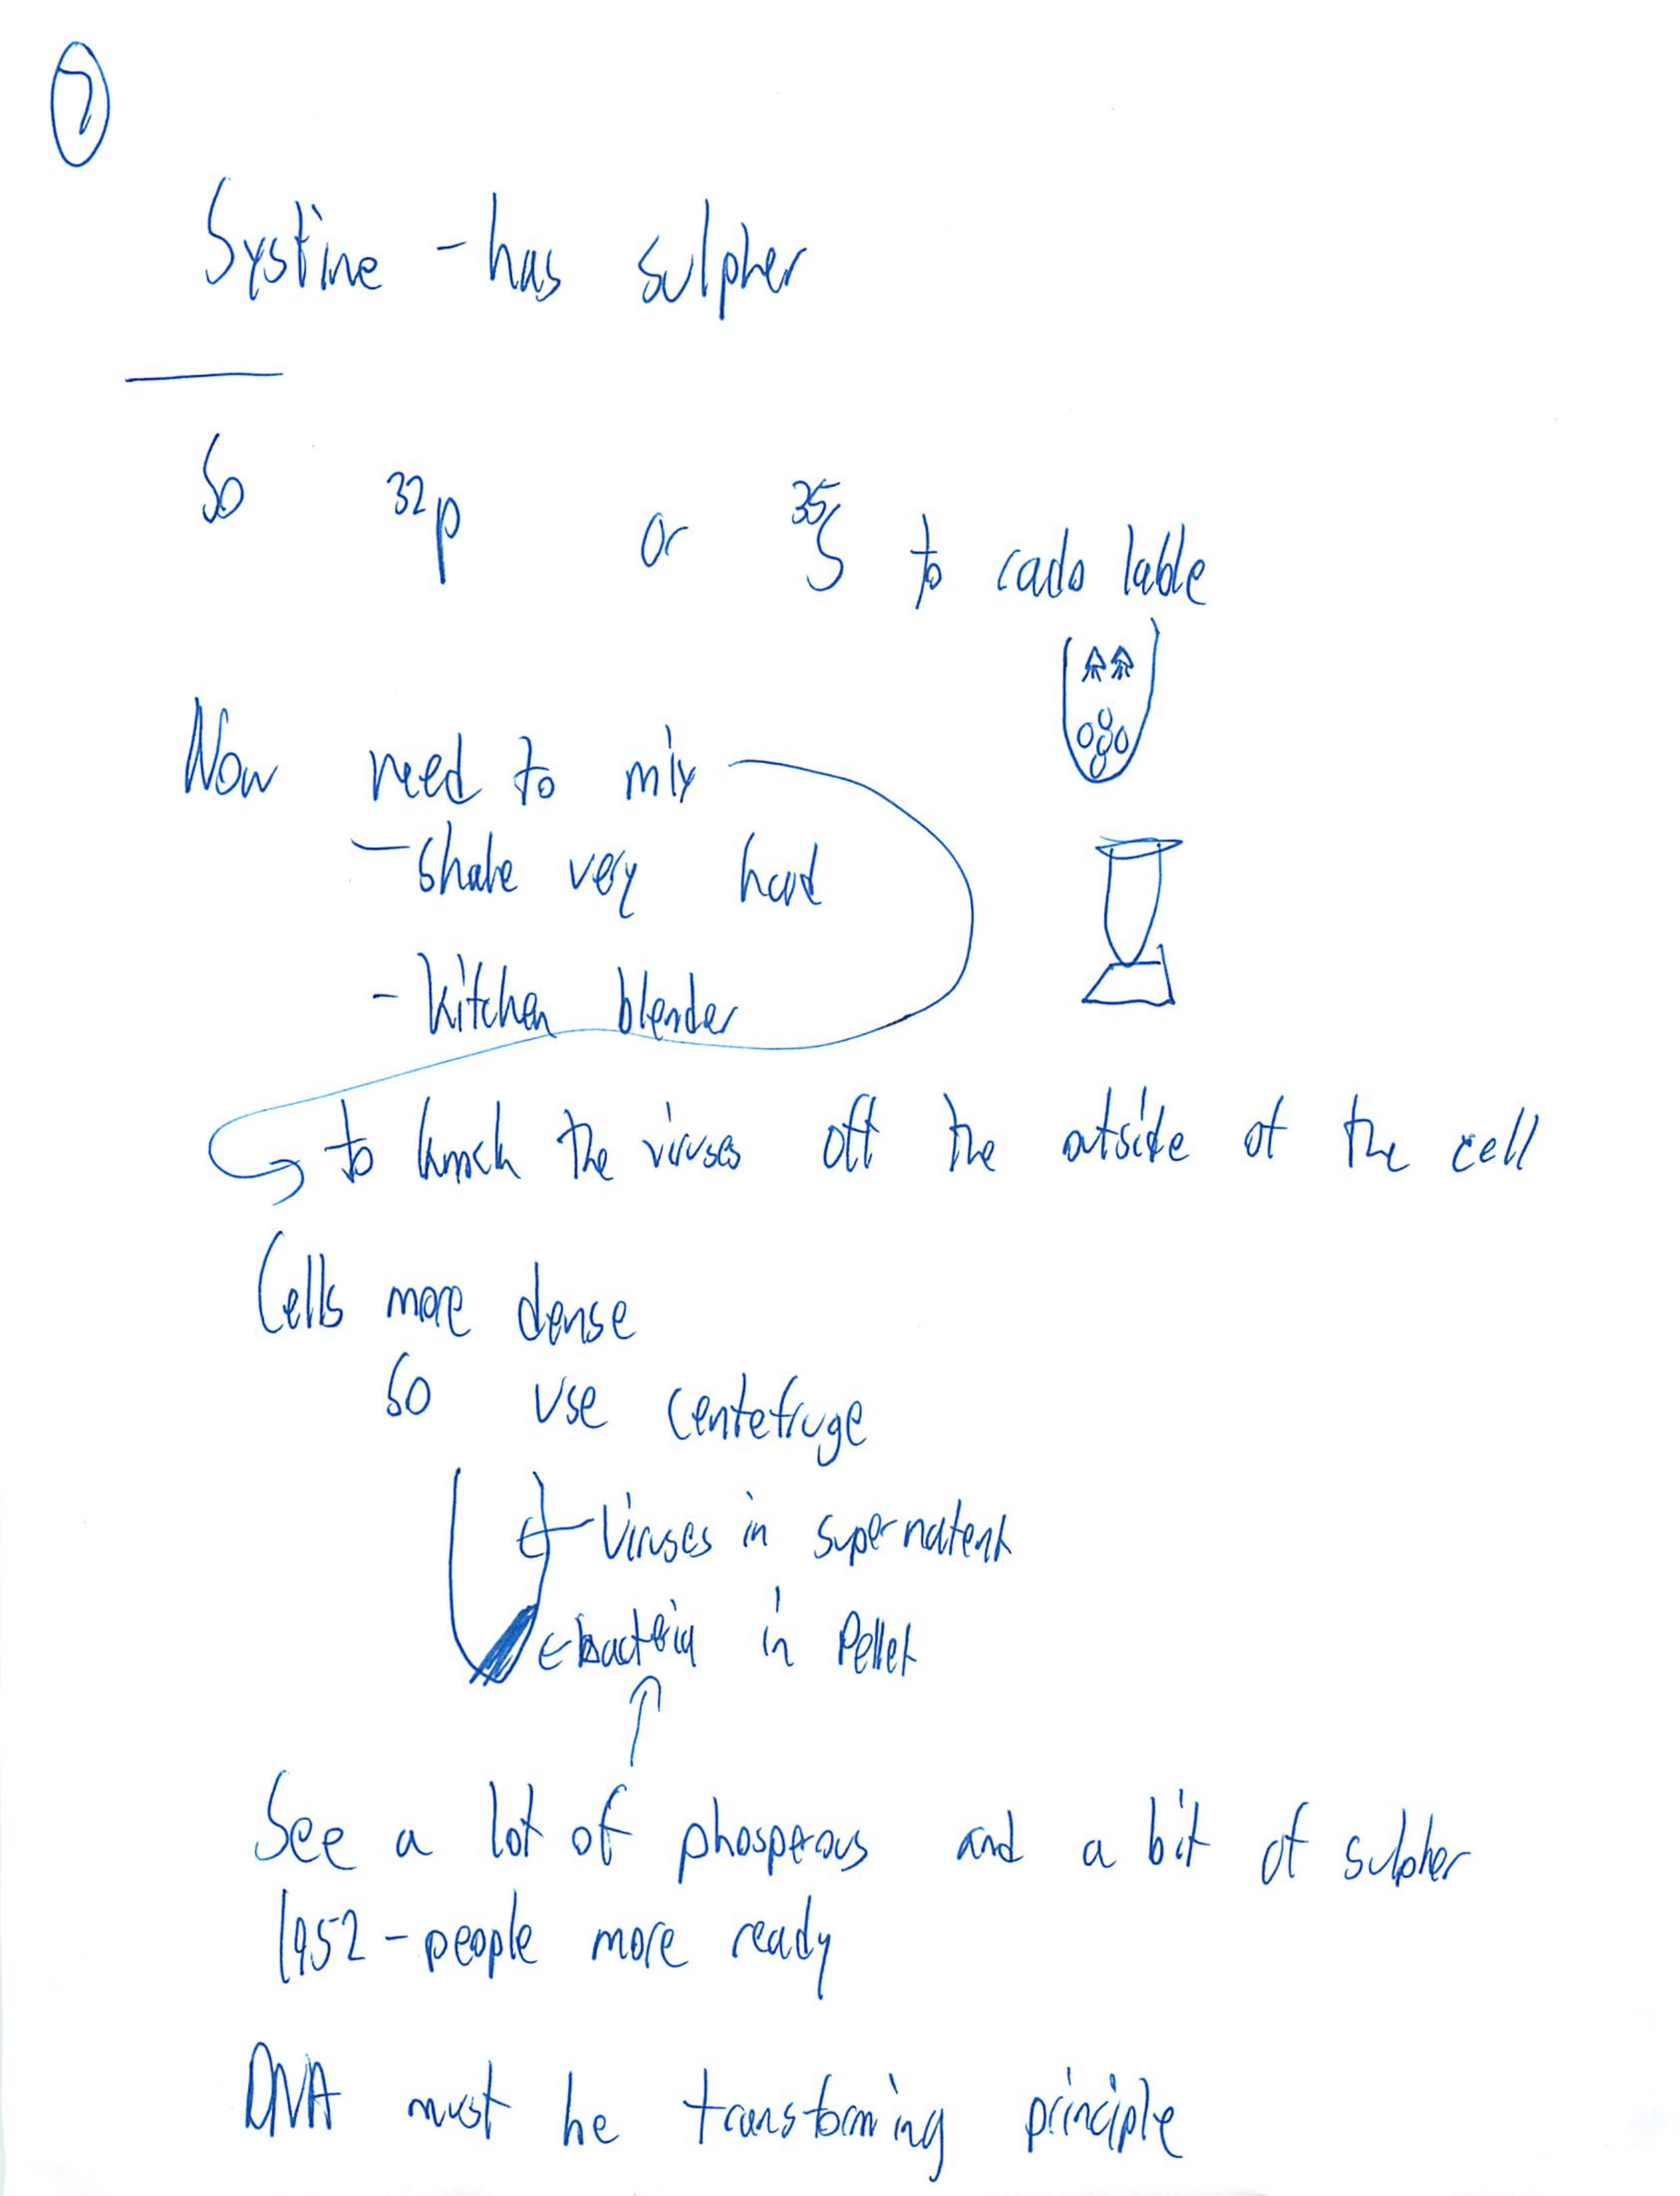 7
Systine - has sulpher
So 32P or 35S to rado lable
Now need to mix
- Shake very hard
- kitchen blender
to knock the viruses off the outside of the cell
Cells more dense
So use centefruge
Viruses in supernatent
bacteria in Pellet
See a lot of phosperous and a bit of sulpher
1952 - people more ready
DNA must be transforming principle